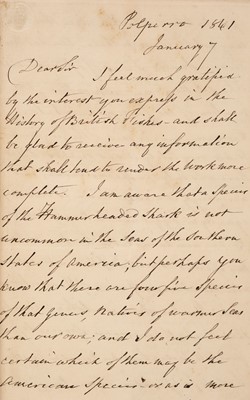 Polperro 1841
January 7
Dear Sir
I feel much gratified
by the interest you express in the
History of British Fishes - and shall
be glad to receive any information
that shall tend to render the work more
complete. I am aware that a Species
of the Hammerheaded Shark is not
uncommon in the Seas of the Southern
States of America, but perhaps you
know that there are four or five Species
of that genus, natives of warmer Seas
than our own; and I do not feel
certain which of them may be the
American Species - or as is more